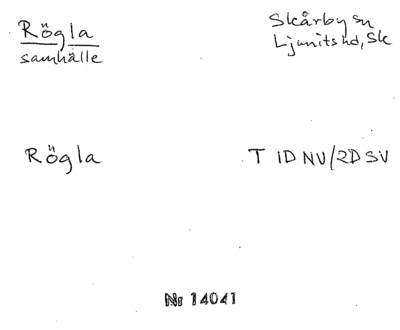 Rögla
samhälle
Skårby sn
Ljunits hd, Sk
Rögla
T 1D NV/2D SV
Nr 14041